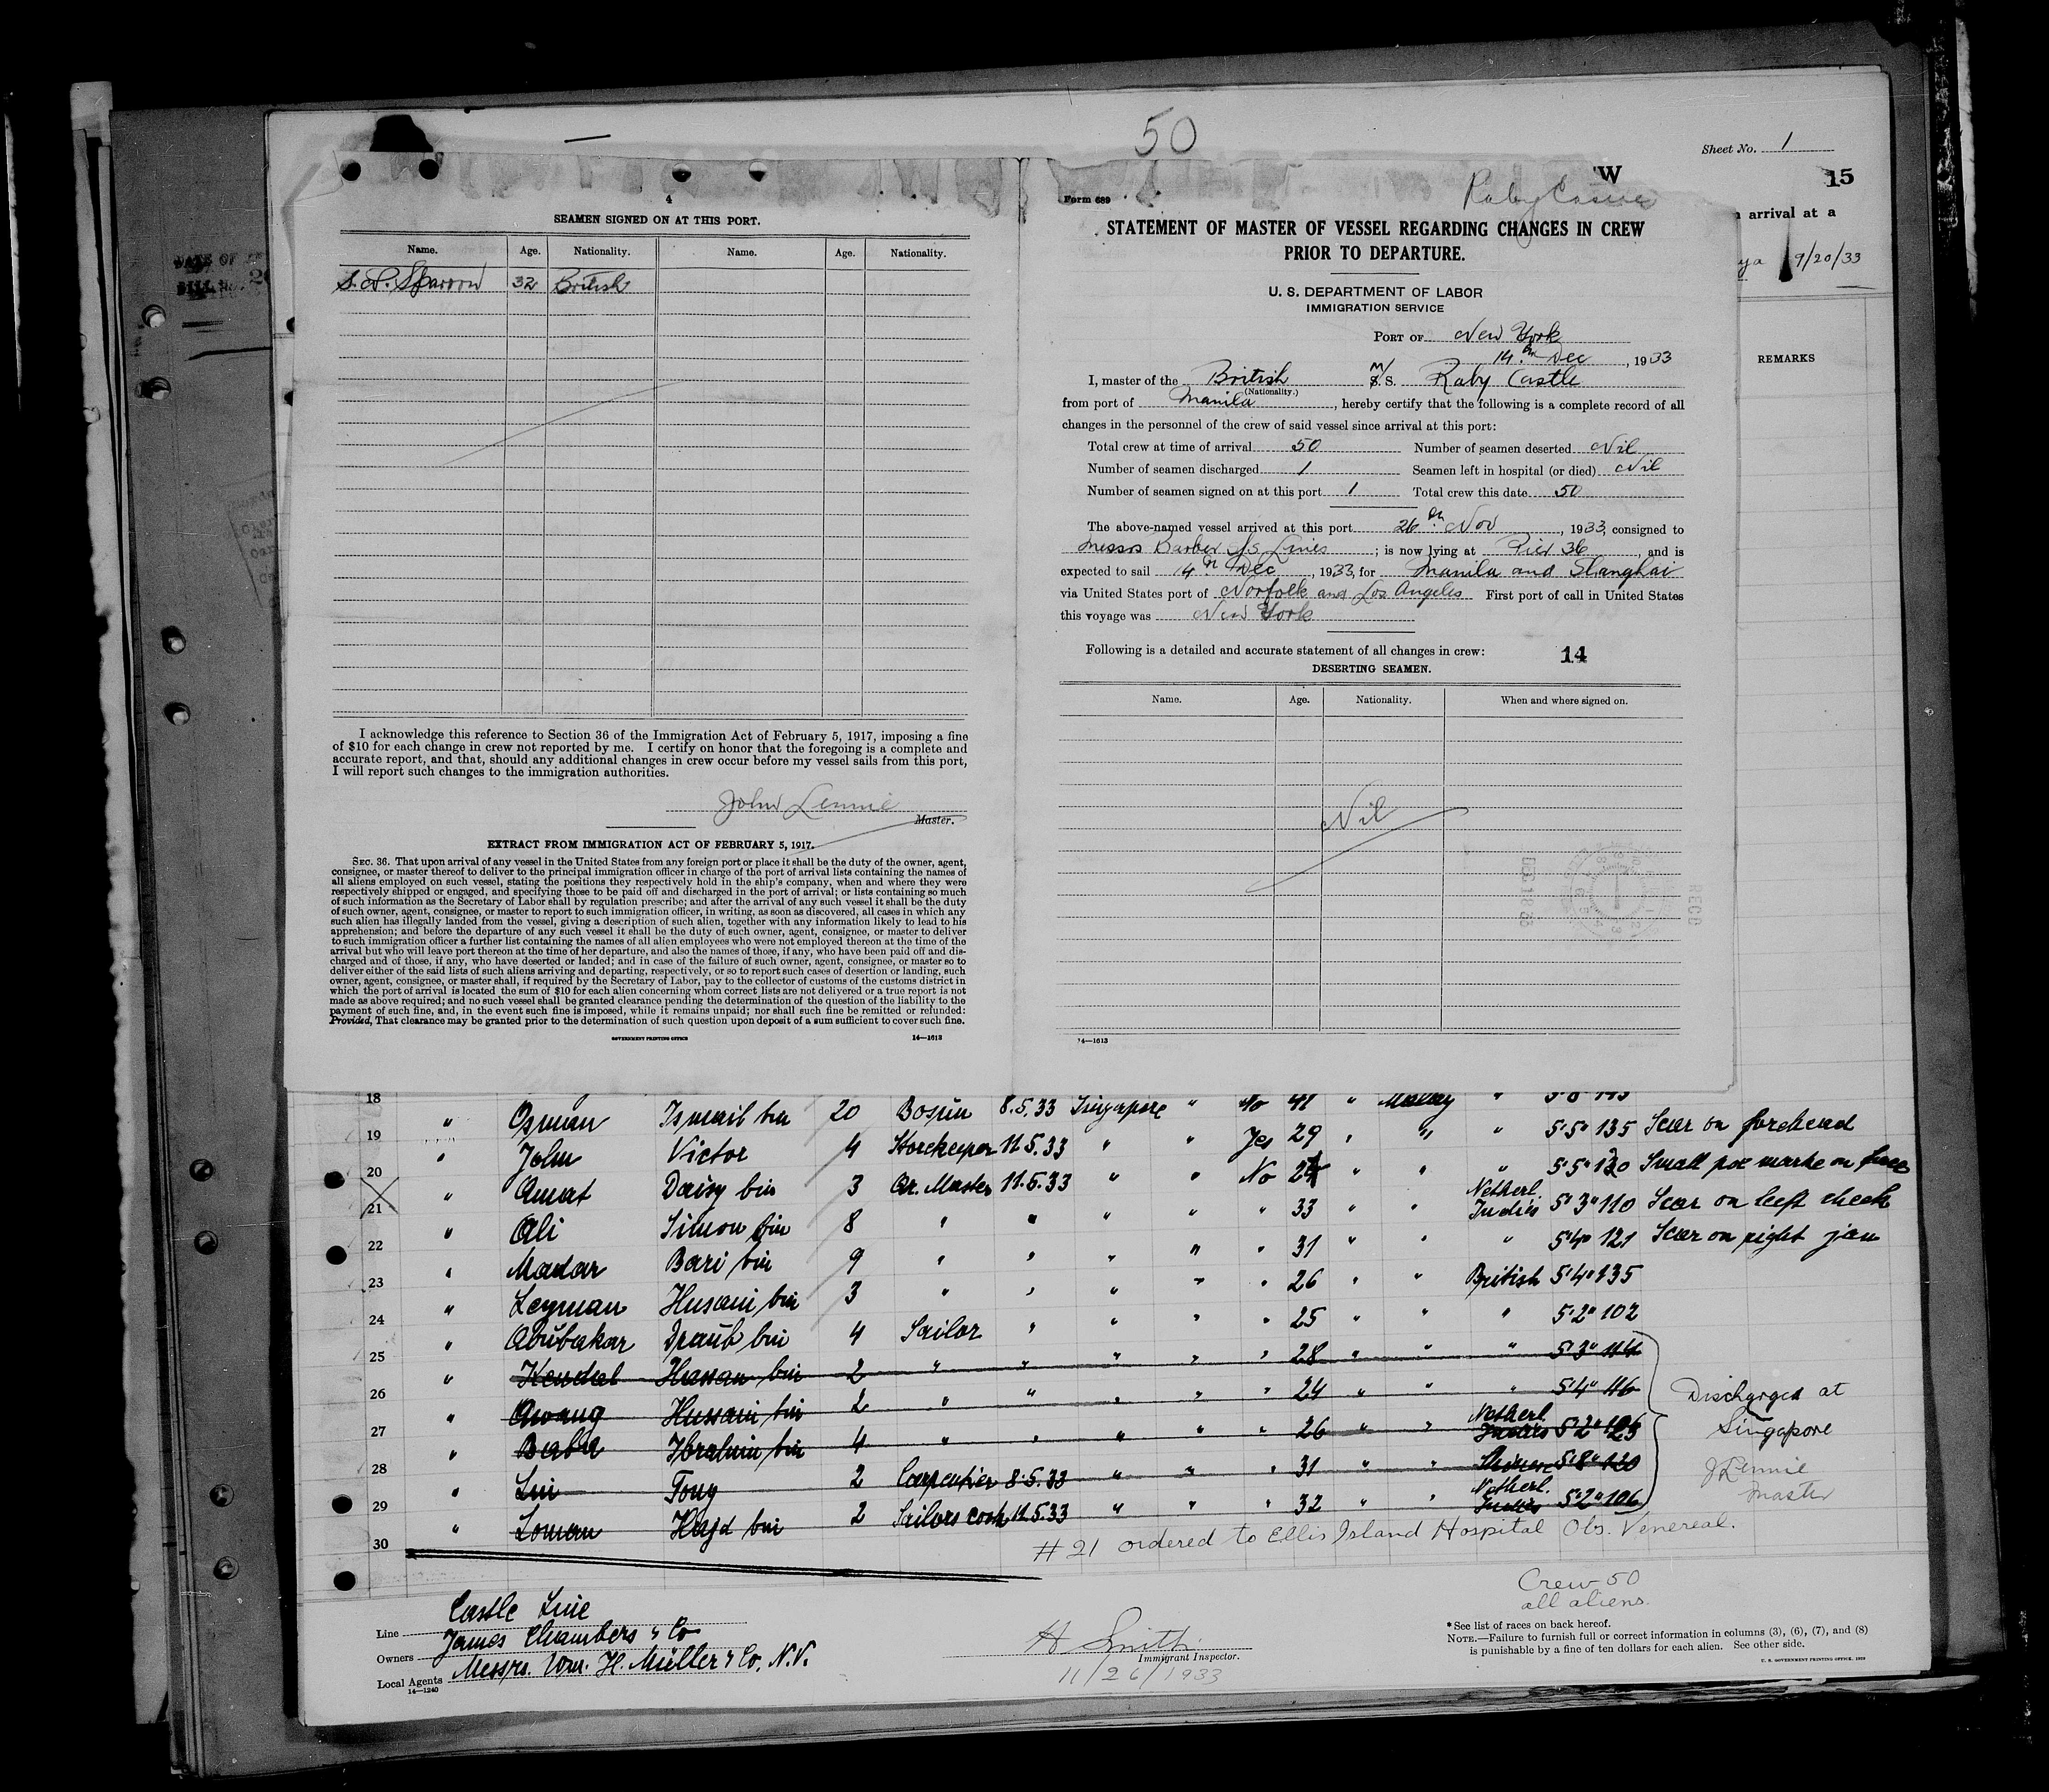 50
Sheet No. 1
W
15
4
SEAMEN SIGNED ON AT THIS PORT.
Name. Age. Nationality. Name. Age. Nationality.
32 British
I acknowledge this reference to Section 36 of the Immigration Act of February 5, 1917, imposing a fine
of $10 for each change in crew not reported by me. I certify on honor that the foregoing is a complete and
accurate report, and that, should any additional changes in crew occur before my vessel sails from this port,
I will report such changes to the immigration authorities.
John Lennie
Master.
EXTRACT FROM IMMIGRATION ACT OF FEBRUARY 5, 1917.
SEC. 36. That upon arrival of any vessel in the United States from any foreign port or place it shall be the duty of the owner, agent,
consignee, or master thereof to deliver to the principal immigration officer in charge of the port of arrival lists containing the names of
all aliens employed on such vessel, stating the positions they respectively hold in the ship's company, when and where they were
respectively shipped or engaged, and specifying those to be paid off and discharged in the port of arrival; or lists containing so much
of such information as the Secretary of Labor shall by regulation prescribe; and after the arrival of any such vessel it shall be the duty
of such owner, agent, consignee, or master to report to such immigration officer, in writing, as soon as discovered, all cases in which any
such alien has illegally landed from the vessel, giving a description of such alien, together with any information likely to lead to his
apprehension; and before the departure of any such vessel it shall be the duty of such owner, agent, consignee, or master to deliver
to such immigration officer a further list containing the names of all alien employees who were not employed thereon at the time of the
arrival but who will leave port thereon at the time of her departure, and also the names of those, if any, who have been paid off and dis-
charged and of those, if any, who have deserted or landed; and in case of the failure of such owner, agent, consignee, or master so to
deliver either of the said lists of such aliens arriving and departing, respectively, or so to report such cases of desertion or landing, such
owner, agent, consignee, or master shall, if required by the Secretary of Labor, pay to the collector of customs of the customs district in
which the port of arrival is located the sum of $10 for each alien concerning whom correct lists are not delivered or a true report is not
made as above required; and no such vessel shall be granted clearance pending the determination of the question of the liability to the
payment of such fine, and, in the event such fine is imposed, while it remains unpaid; nor shall such fine be remitted or refunded:
Provided, That clearance may be granted prior to the determination of such question upon deposit of a sum sufficient to cover such fine.
GOVERNMENT PRINTING OFFICE 14—1613
Form 689
Raby Castle
STATEMENT OF MASTER OF VESSEL REGARDING CHANGES IN CREW
PRIOR TO DEPARTURE.
U. S. DEPARTMENT OF LABOR
IMMIGRATION SERVICE
PORT OF New York
14th Dec, 1933
I, master of the British M/S. S. Raby Castle
(Nationality.)
from port of Manila, hereby certify that the following is a complete record of all
changes in the personnel of the crew of said vessel since arrival at this port:
Total crew at time of arrival 50 Number of seamen deserted Nil
Number of seamen discharged 1 Seamen left in hospital (or died) Nil
Number of seamen signed on at this port 1 Total crew this date 50
The above-named vessel arrived at this port 26th Nov, 1933, consigned to
Messrs Barber SS Lines; is now lying at Pier 36, and is
expected to sail 14th Dec, 1933, for Manila and Shanghai
via United States port of Norfolk and Los Angeles First port of call in United States
this voyage was New York
Following is a detailed and accurate statement of all changes in crew: 14
DESERTING SEAMEN.
Name. Age. Nationality. When and where signed on.
Nil
14—1613
arrival at a
9/20/33
REMARKS
18 " Osman Ismail bin 20 Bosun 8.5.33 Singapore " No 41 " Malay "
19 " John Victor 4 Storekeeper 11.5.33 " " Yes 29 " " " 5'5" 135 Scar on forehead
20 " Amat Daisy bin 3 Qr. Master 11.5.33 " " No " " " 5'5" 130 Small pox marks on face
21 " Ali Simon bin 8 " " " " " 33 " " Netherl. Indies 5'3" 110 Scar on left cheek
22 " Madar Bari bin 9 " " " " " 31 " " " 5'4" 121 Scar on right jaw
23 " Leyman Husani bin 3 " " " " " 26 " " British 5'4" 135
24 " Abubakar Draub bin 4 Sailor " " " " 25 " " " 5'2" 102
25 " Hassan bin 2 " " " " " 28 " " " 5'3" 114
26 " Awang Hussain bin 2 " " " " " 24 " " " 5'4"
27 " Baba Ibrahim bin 4 " " " " " 26 " " Netherl. Indies 5'2"
28 " Lui Tong 2 Carpenter 8.5.33 " " " 31 " " Chinese 5'8" 120
29 " Loman Hajd bin 2 Sailors cook 11.5.33 " " " 32 " " Netherl. Indies 5'2" 106
30
Discharged at
Singapore
J Lennie
Master
# 21 ordered to Ellis Island Hospital Obs. Venereal.
Crew 50
all aliens.
Line Castle Line
Owners James Chambers & Co
Local Agents Messrs. Wm. H. Müller & Co. N.V.
14—1240
H Smith
Immigrant Inspector.
11/26/1933
* See list of races on back hereof.
NOTE.—Failure to furnish full or correct information in columns (3), (6), (7), and (8)
is punishable by a fine of ten dollars for each alien. See other side.
U. S. GOVERNMENT PRINTING OFFICE